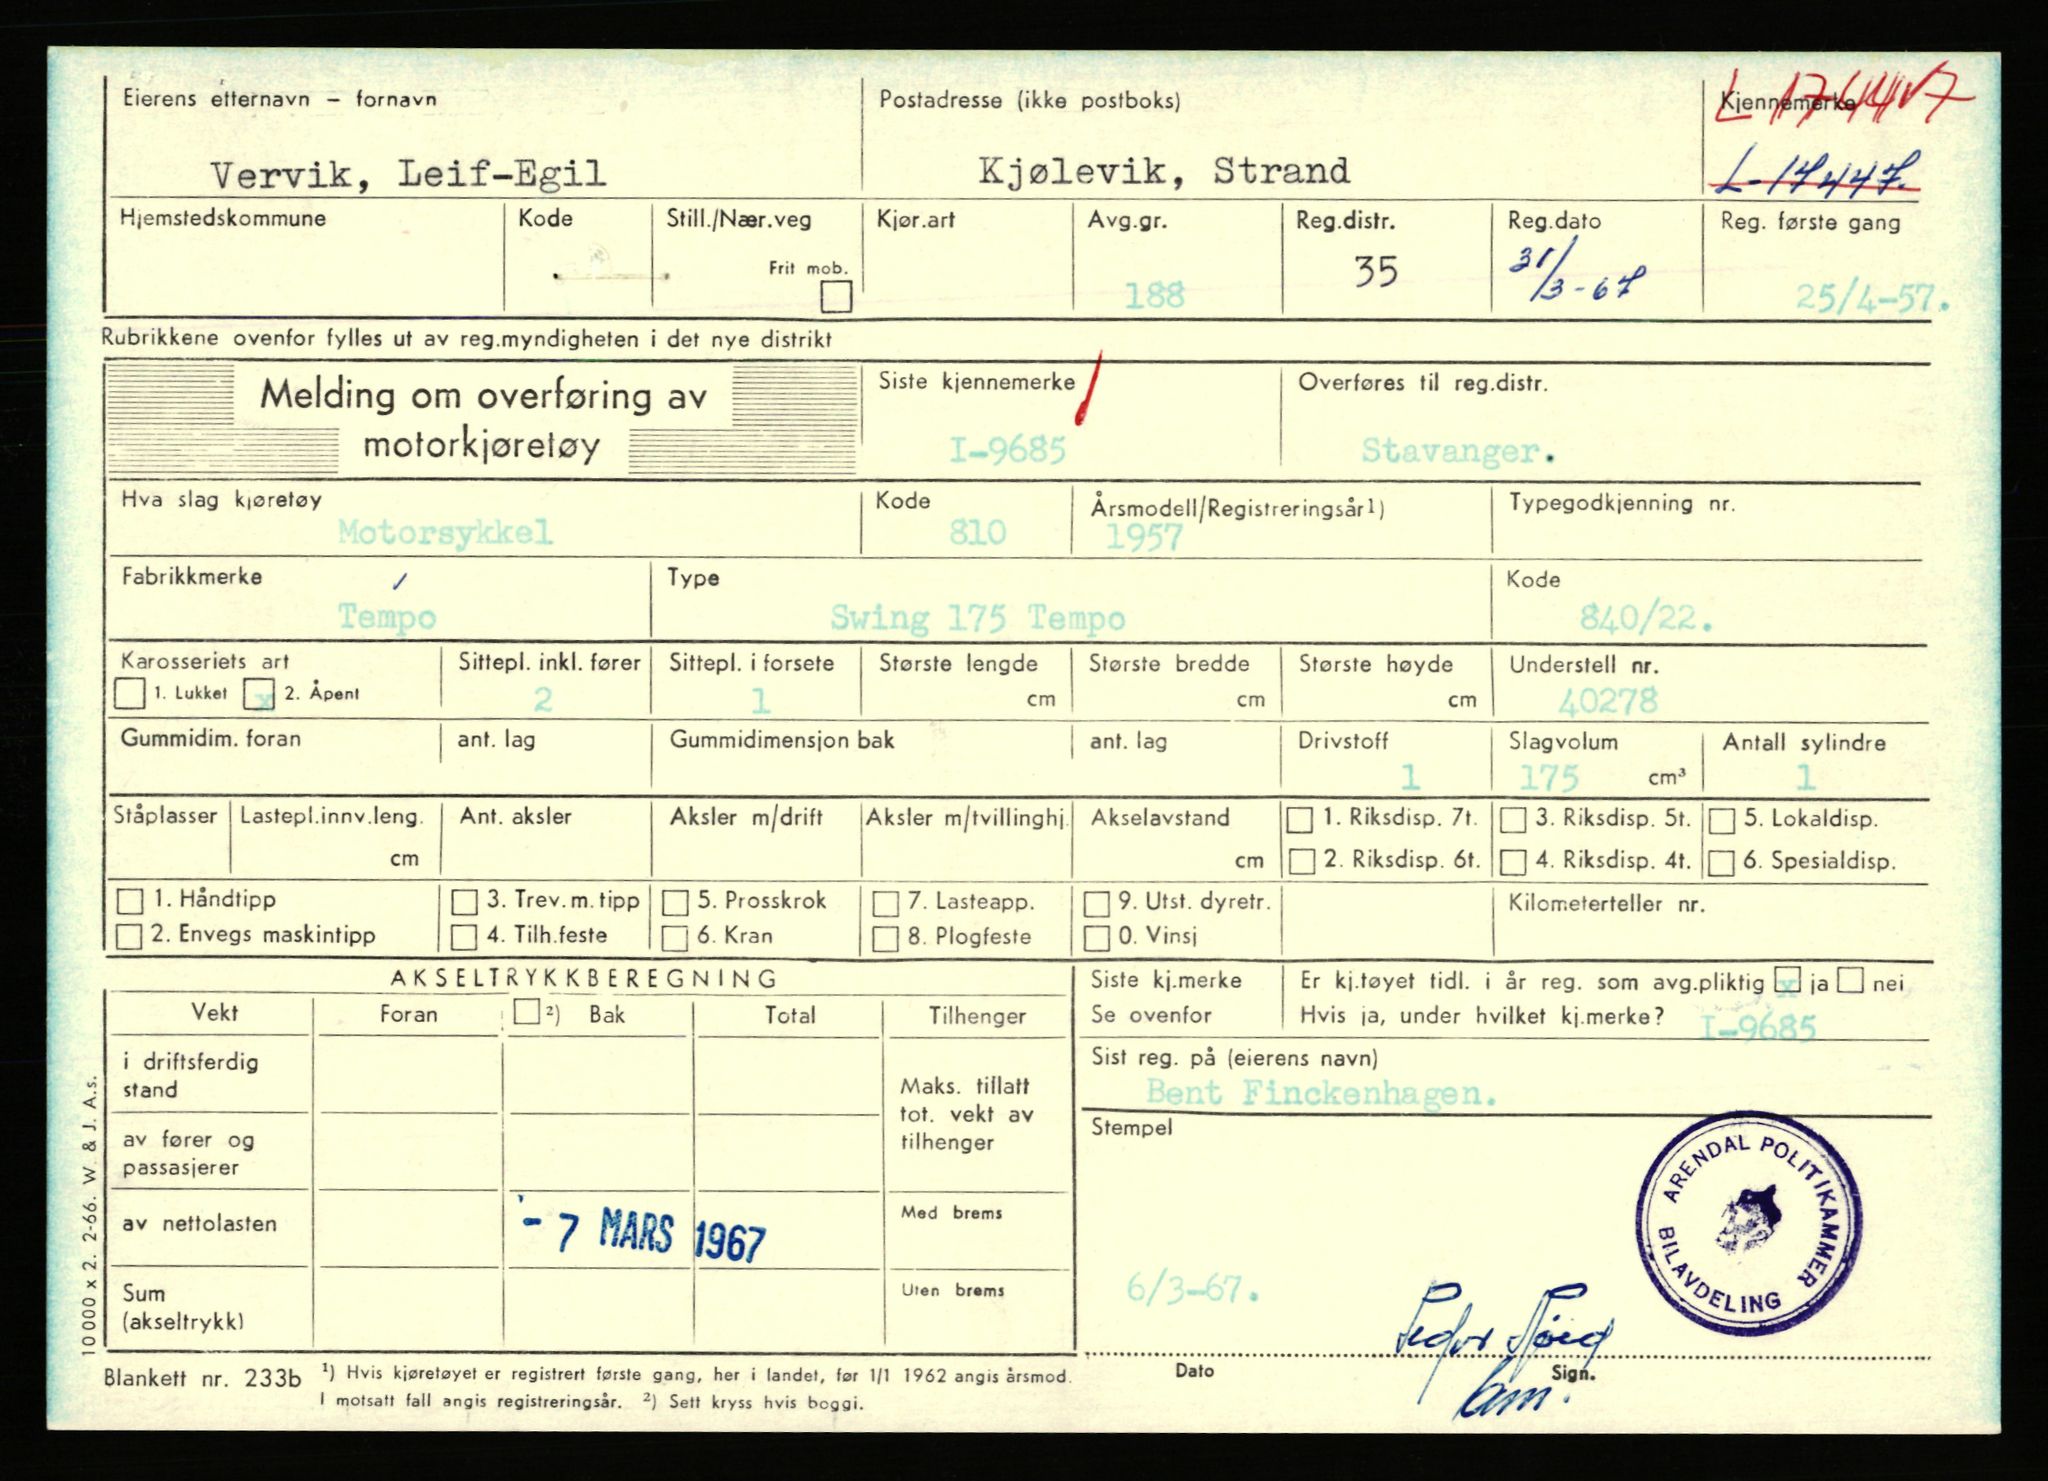 Eierens etternavn – fornavn
Postadresse (ikke postboks)
Kjennemerke
L-17447
Vervik, Leif-Egil
Kjølevik, Strand
L-17447.
Hjemstedskommune
Kode
Still./Nær.veg
Kjør.art
Avg.gr.
Reg.distr.
Reg.dato
Reg. første gang
Frit mob.
188
35
31/3-67
25/4-57.
Rubrikkene ovenfor fylles ut av reg.myndigheten i det nye distrikt
Melding om overføring av
motorkjøretøy
Siste kjennemerke
Overføres til reg.distr.
I-9685
Stavanger.
Hva slag kjøretøy
Kode
Årsmodell/Registreringsår1)
Typegodkjenning nr.
Motorsykkel
810
1957
Fabrikkmerke
Type
Kode
Tempo
Swing 175 Tempo
840/22.
Karosseriets art
Sittepl. inkl. fører
Sittepl. i forsete
Største lengde
Største bredde
Største høyde
Understell nr.
1. Lukket
x
2. Åpent
2
1
cm
cm
cm
40278
Gummidim. foran
ant. lag
Gummidimensjon bak
ant. lag
Drivstoff
Slagvolum
Antall sylindre
1
175
cm³
1
Ståplasser
Lastepl.innv.leng.
Ant. aksler
Aksler m/drift
Aksler m/tvillinghj.
Akselavstand
1. Riksdisp. 7t.
3. Riksdisp. 5t.
5. Lokaldisp.
cm
cm
2. Riksdisp. 6t.
4. Riksdisp. 4t.
6. Spesialdisp.
1. Håndtipp
3. Trev. m. tipp
5. Prosskrok
7. Lasteapp.
9. Utst. dyretr.
Kilometerteller nr.
2. Envegs maskintipp
4. Tilh.feste
6. Kran
8. Plogfeste
0. Vinsj
AKSELTRYKKBEREGNING
Siste kj.merke
Er kj.tøyet tidl. i år reg. som avg.pliktig x ja nei
Vekt
Foran
2) Bak
Total
Tilhenger
Se ovenfor
Hvis ja, under hvilket kj.merke?
I-9685
i driftsferdig
stand
Maks. tillatt
tot. vekt av
tilhenger
Sist reg. på (eierens navn)
Bent Finckenhagen.
av fører og
passasjerer
Stempel
ARENDAL POLITIKAMMER
BILAVDELING
av nettolasten
- 7 MARS 1967
Med brems
Sum
(akseltrykk)
Uten brems
6/3-67.
Dato
Sign.
10 000 x 2. 2-66. W. & J. A.s.
Blankett nr. 233b
1) Hvis kjøretøyet er registrert første gang, her i landet, før 1/1 1962 angis årsmod.
I motsatt fall angis registreringsår. 2) Sett kryss hvis boggi.